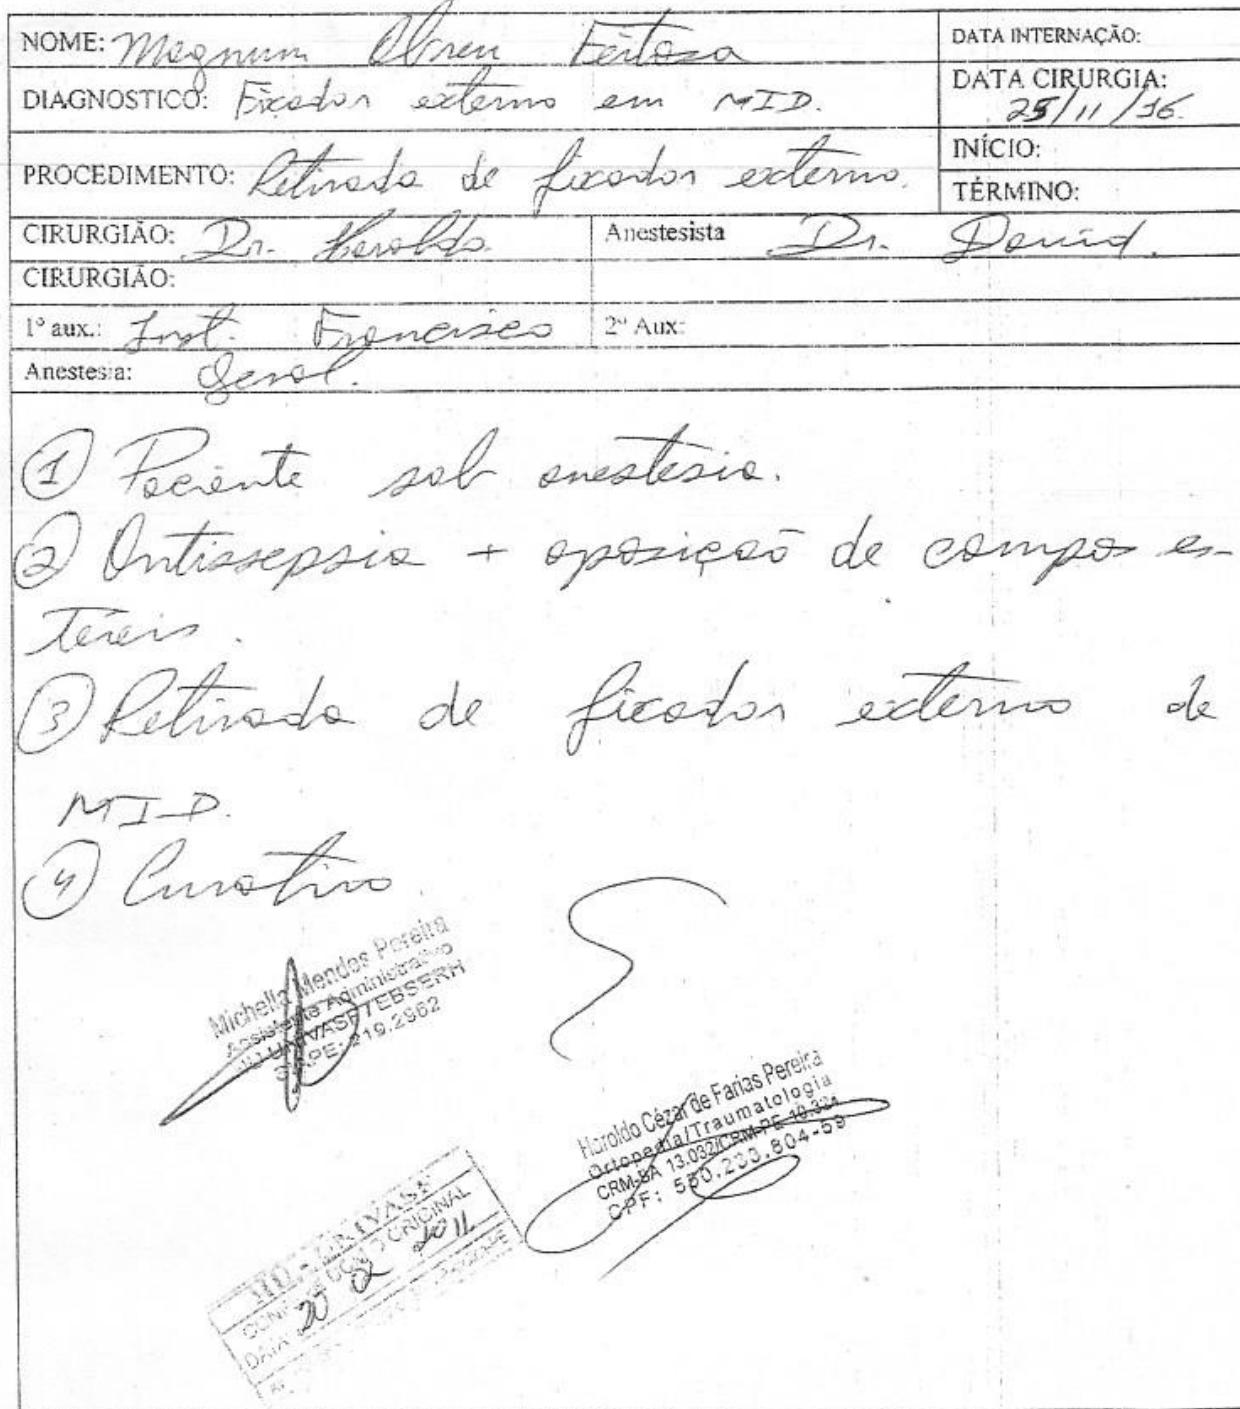 NOME: Magnum Abreu Feitosa
DATA INTERNAÇÃO:
DIAGNOSTICO: Fixador externo em MID.
DATA CIRURGIA: 25/11/16
PROCEDIMENTO: Retirada de fixador externo.
INÍCIO:
TÉRMINO:
CIRURGIÃO: Dr. Haroldo.
Anestesista Dr. David.
CIRURGIÃO:
1º aux.: Inst. Francisco
2º Aux:
Anestesia: Geral.
① Paciente sob anestesia.
② Antissepsia + aposição de campos es-
téreis.
③ Retirada de fixador externo de
MID.
④ Curativo.
Michella Mendes Pereira
Assistente Administrativo
HU UNIVASF / EBSERH
SIAPE: 219.2962
Haroldo Cézar de Farias Pereira
Ortopedia/Traumatologia
CRM-BA 13.032/CRM-PE
CPF: 550.233.804-59
UNIVASF
COM O ORIGINAL
DATA 20 02